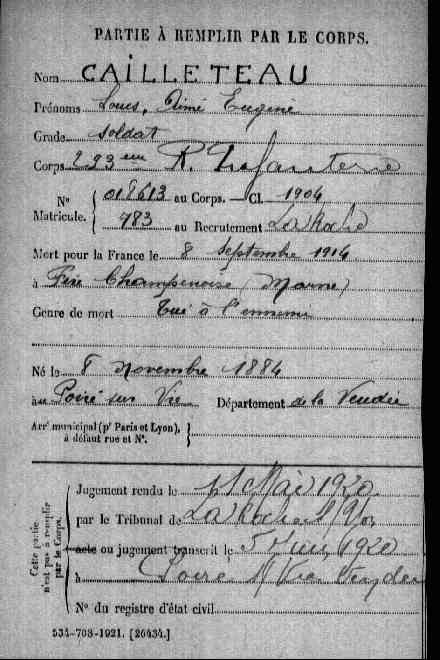 PARTIE À REMPLIR PAR LE CORPS.
Nom CAILLETEAU
Prénoms Louis, Aimé Eugène
Grade soldat
Corps 293 eme R. Infanterie
N° 018613 au Corps. — Cl. 1904
Matricule. 983 au Recrutement La Roche
Mort pour la France le 8 septembre 1914
à Fère Champenoise (Marne)
Genre de mort Tué à l'ennemi
Né le 8 Novembre 1884
au Poiré sur Vie Département de la Vendée
Arr' municipal (p' Paris et Lyon),
à défaut rue et N°.
Cette partie
n'est pas à remplir
par le Corps.
Jugement rendu le 11 Mai 1920
par le Tribunal de La Roche s/ Yon
acte ou jugement transcrit le 5 1920
à Poiré s/ Vie Vendée
N° du registre d'état civil
534-708-1921. [26434.]